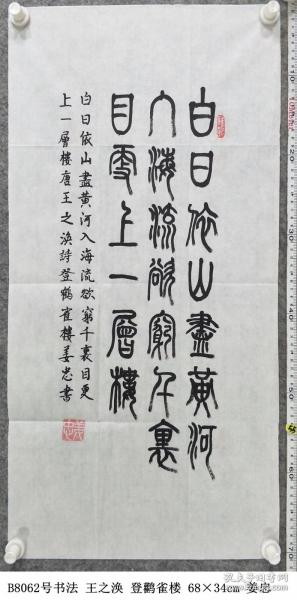 白日依山盡黃河
入海流欲窮千裏
目更上一層樓
白日依山盡黃河入海流欲窮千裏目更
上一層樓唐王之渙詩登鶴雀樓姜忠書
B8062号书法 王之涣 登鹳雀楼 68×34cm 姜忠